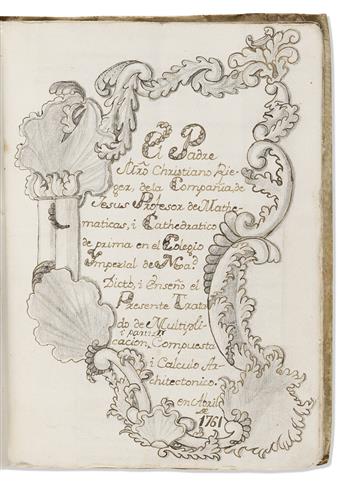 El Padre
Mrõ Christiano Rie-
ger, de la Compañia, de
Jesus Profesor de Mathe-
maticas, i Cathedratico
de prima en el Colegio
Ymperial de Mad.
Dictó, i Enseño el
Presente Trata
do de Multipli-
i partiz.n
cacion, Compuesta
i Calculo Ar-
chitectonico.
en Abril
de
1761